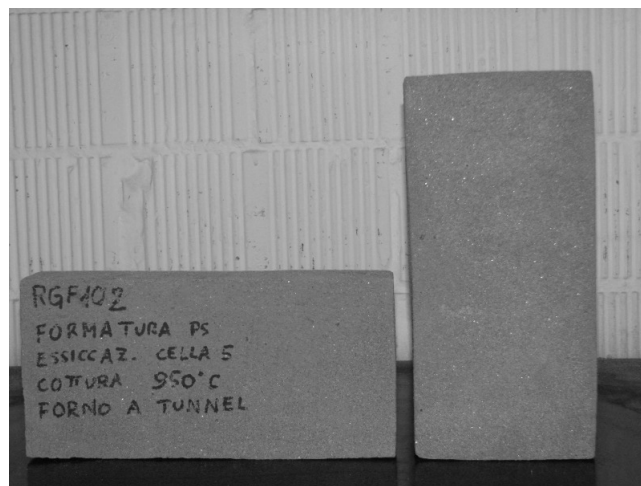 RGF102
FORMATURA PS
ESSICCAZ. CELLA 5
COTTURA 950°C
FORNO A TUNNEL